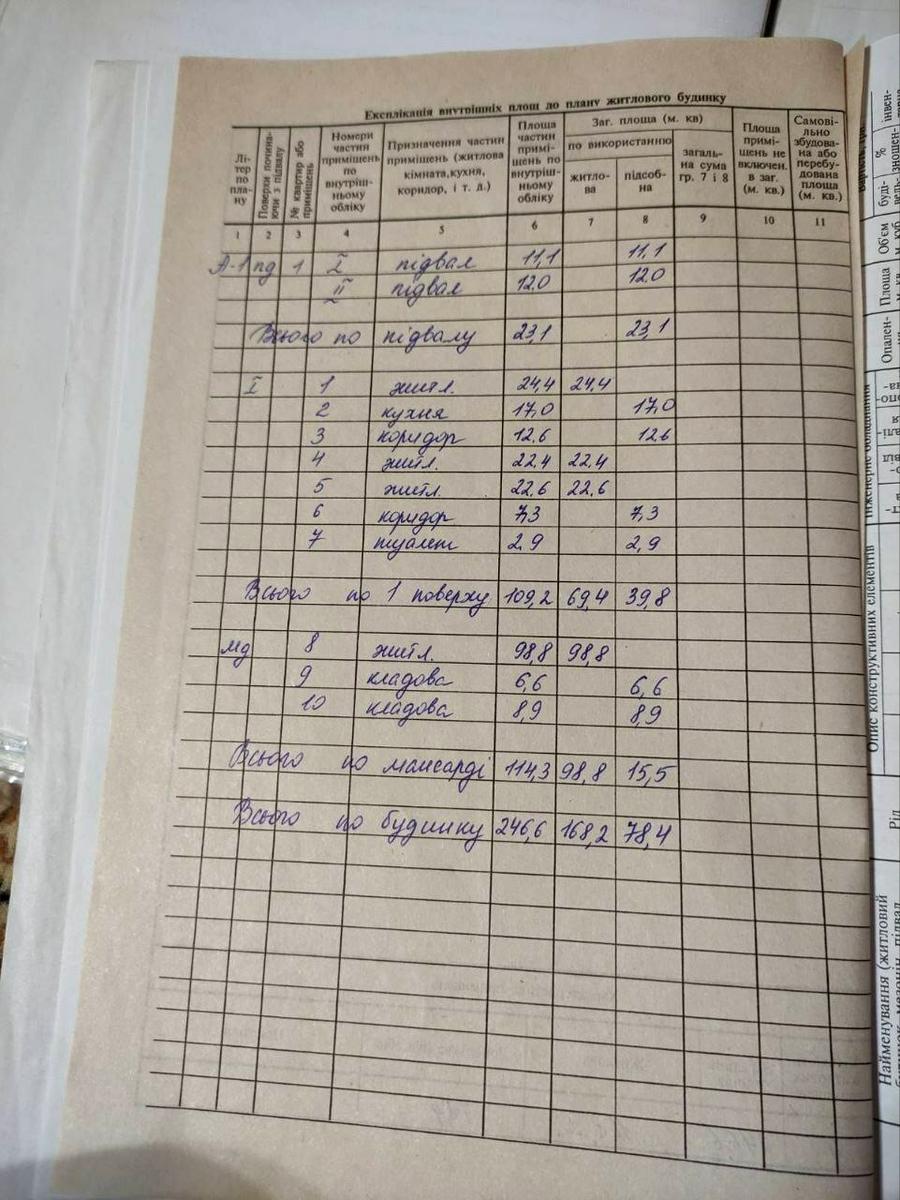 Експлікація внутрішніх площ до плану житлового будинку
Лі-
тер
по
пла-
ну
Поверхи почина-
ючи з підвалу
№ квартир або
приміщень
Номери
частин
приміщень
по
внутріш-
ньому
обліку
Призначення частин
приміщень (житлова
кімната,кухня,
коридор, і т. д.)
Площа
частин
примі-
щень по
внутріш-
ньому
обліку
Заг. площа (м. кв)
по використанню
житло-
ва
підсоб-
на
загаль-
на сума
гр. 7 і 8
Площа
примі-
щень не
включен.
в заг.
(м. кв.)
Самові-
льно
збудова-
на або
перебу-
дована
площа
(м. кв.)
1 2 3 4 5 6 7 8 9 10 11
А-1 пд 1 I підвал 11,1 11,1
II підвал 12,0 12,0
Всього по підвалу 23,1 23,1
I 1 житл. 24,4 24,4
2 кухня 17,0 17,0
3 коридор 12,6 12,6
4 житл. 22,4 22,4
5 житл. 22,6 22,6
6 коридор 7,3 7,3
7 туалет 2,9 2,9
Всього по 1 поверху 109,2 69,4 39,8
мд 8 житл. 98,8 98,8
9 кладова 6,6 6,6
10 кладова 8,9 8,9
Всього по мансарді 114,3 98,8 15,5
Всього по будинку 246,6 168,2 78,4
інвен-
%
зношен-
буді-
вель-
Об'єм
м. куб
Площа
м. кв
Опален-
Інженерне обладнання
Опис конструктивних елементів
Рід
Найменування (житловий